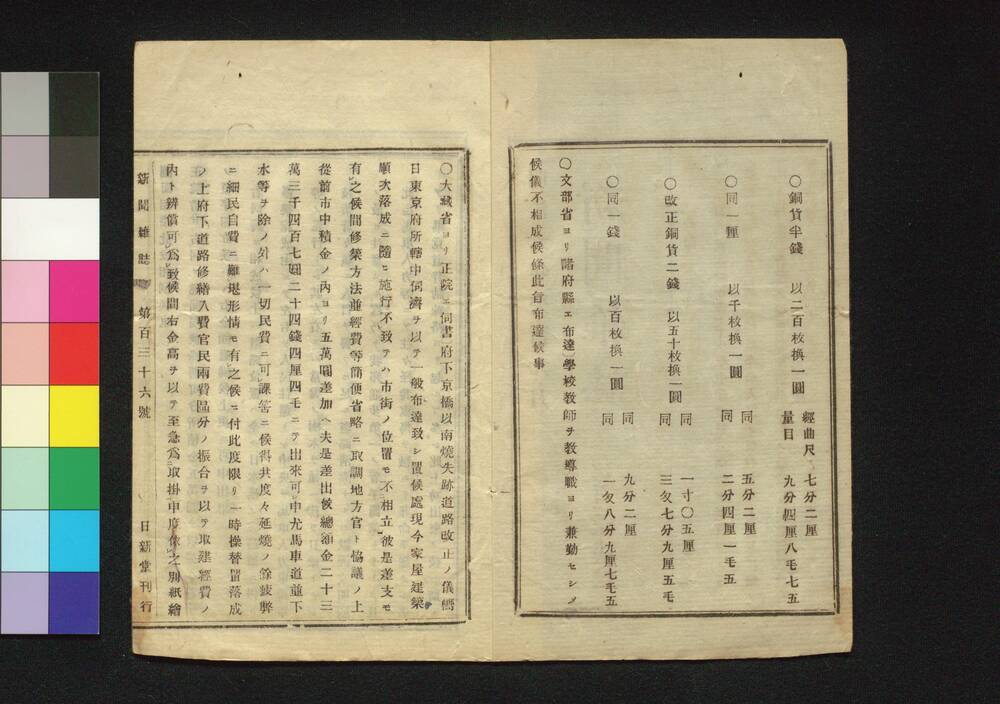 〇銅貨半錢　以二百枚換一圓　經曲尺　七分二厘
量目　九分四厘八毛七五
〇同一厘　以千枚換一圓　同　五分二厘
同　二分四厘一毛五
〇改正銅貨二錢　以五十枚換一圓　同　一寸〇五厘
同　三匁七分九厘五毛
〇同一錢　以百枚換一圓　同　九分二厘
同　一匁八分九厘七毛五
〇文部省ヨリ諸府縣エ布達〕學校敎師ヲ敎導職ヨリ兼勤セシメ
候儀不相成候條此旨布達候事
〇大藏省ヨリ正院エ伺書〕府下京橋以南燒失跡道路改正ノ儀嚮
日東京府所轄中伺濟ヲ以テ一般布達致シ置候處現今家屋建築
順次落成ニ隨ヒ施行不致テハ市街ノ位置モ不相立彼是差支モ
有之候間修築方法並經費等簡便省略ニ取調地方官ト協議ノ上
從前市中積金ノ內ヨリ五萬圓差加ヘ夫是差出候總額金二十三
萬三千四百七圓二十四錢四厘四毛ニテ出來可申尤馬車道並下
水等ヲ除ノ外ハ一切民費ニ可課筈ニ候得共度々延燒ノ餘疲弊
ニ細民自費ニ難堪形情モ有之候ニ付此度限リ一時操替置落成
ノ上府下道路修繕入費官民兩費區分ノ振合ヲ以テ取建經費ノ
內ト辨償可爲致候間右金高ヲ以テ至急爲取掛申度依之別紙繪
新聞雜誌　第百三十六號　日新堂刊行